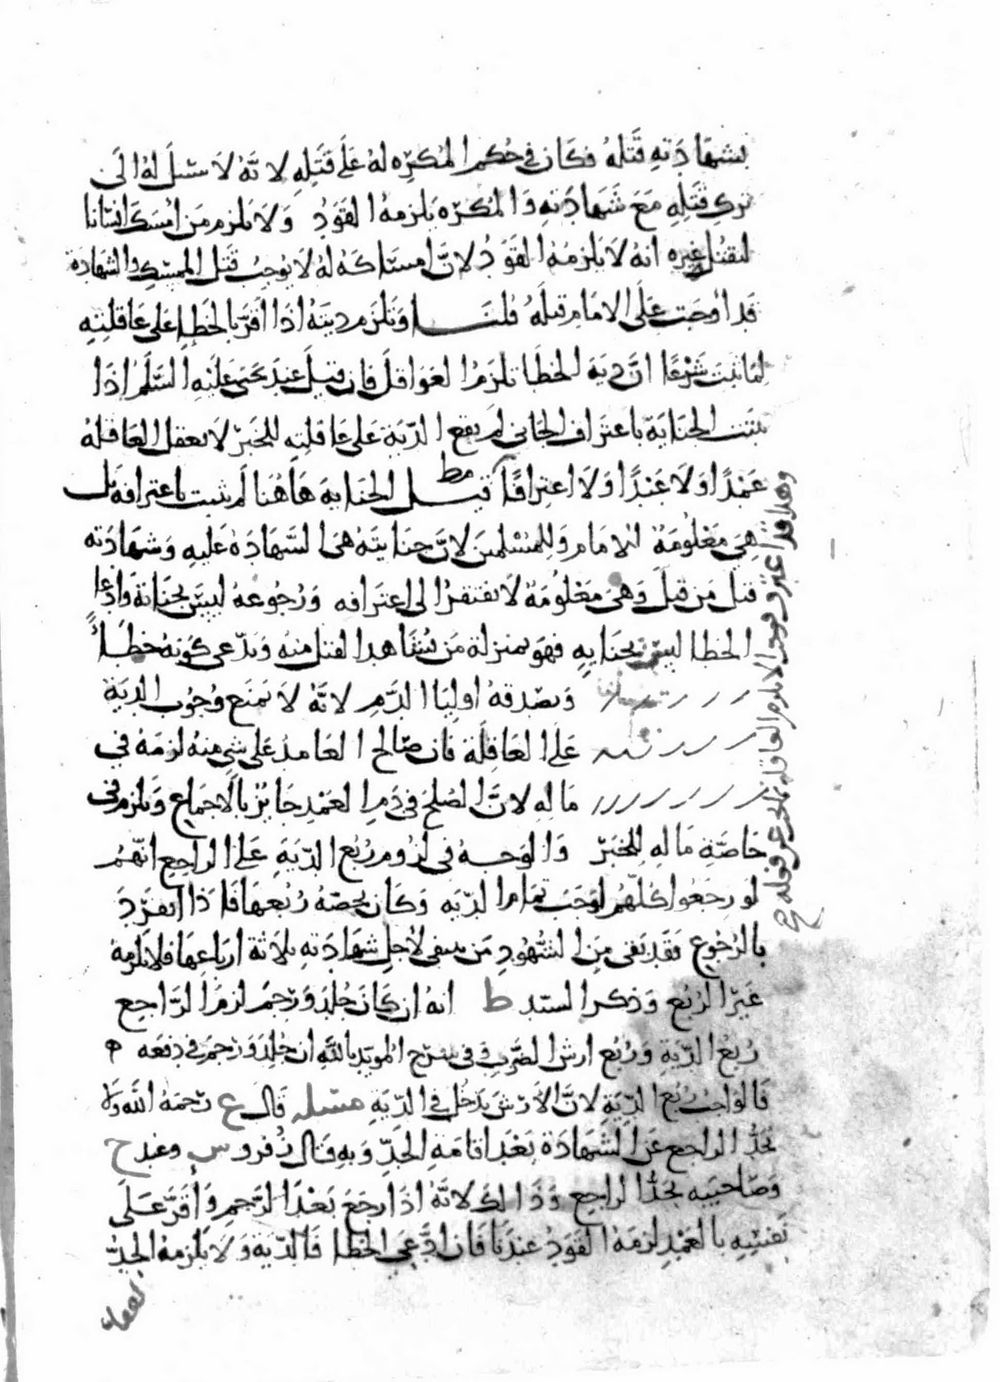 بشهادته قتله فكان في حكم المكره له على قتله لانه لا سبيل له الى
ترك قتله مع شهادته والمكره يلزمه القود ولا يلزم من امسك انسانا
ليقتل غيره انه لا يلزمه القود لان امساكه له لا يوجب قتل الممسك والشهادة
قد اوجبت على الامام قتله قلنا وتلزم ديته اذا اقر بالخطا على عاقلته
لما ثبت شرعا ان دية الخطا تلزم العواقل فان قيل عند يحيى عليه السلم اذا
ثبتت الجناية باعتراف الجاني لم يقع الدية على عاقلته للخبر لا يعقل العاقلة
عمدا ولا عبدا ولا اعترافا قيل الجناية هاهنا لم تثبت باعترافه بل
هي معلومة للامام وللمسلمين لان جنايته هي الشهادة عليه وشهادته
قتل من قتل وهي معلومة لا تفتقر الى اعترافه ورجوعه ليس بجناية وادعا
الخطا ليس بجناية فهو بمنزلة من شاهد القتل منه ويدعي كونه خطاء
ويصدقه اوليا الدم لانه لا يمنع وجوب الدية
على العاقلة فان صالح العامد على شي منه لزمه في
ماله لان الصلح في دم العمد جايز بالاجماع ويلزم في
خاصة ماله للخبر والوجه في لزوم ربع الدية على الراجع انهم
لو رجعوا كلهم لوجب تمام الدية وكان يخصه ربعها فاذا انفرد
بالرجوع فقد بقي من الشهود من يبقى لاجل شهادته ثلاثة ارباعها فلا يلزمه
غير الربع وذكر السيد ط انه ان كان جلد ورجم لزم الراجع
ربع الدية وربع ارش الضرب وفي شرح المويد بالله ان جلد ورجم في دفعه
فالواجب ربع الدية لان الارش يدخل في الدية مسئلة قال ع رحمه الله ولا
يحد الراجع عن الشهادة بعد اقامة الحد وبه قال زفر و س وعند ح
وصاحبيه يحد الراجع وذلك لانه اذا رجع بعد الرجم واقر على
نفسه بالعمد لزمه القود عندنا فان ادعى الخطا فالدية ولا يلزمه الحد